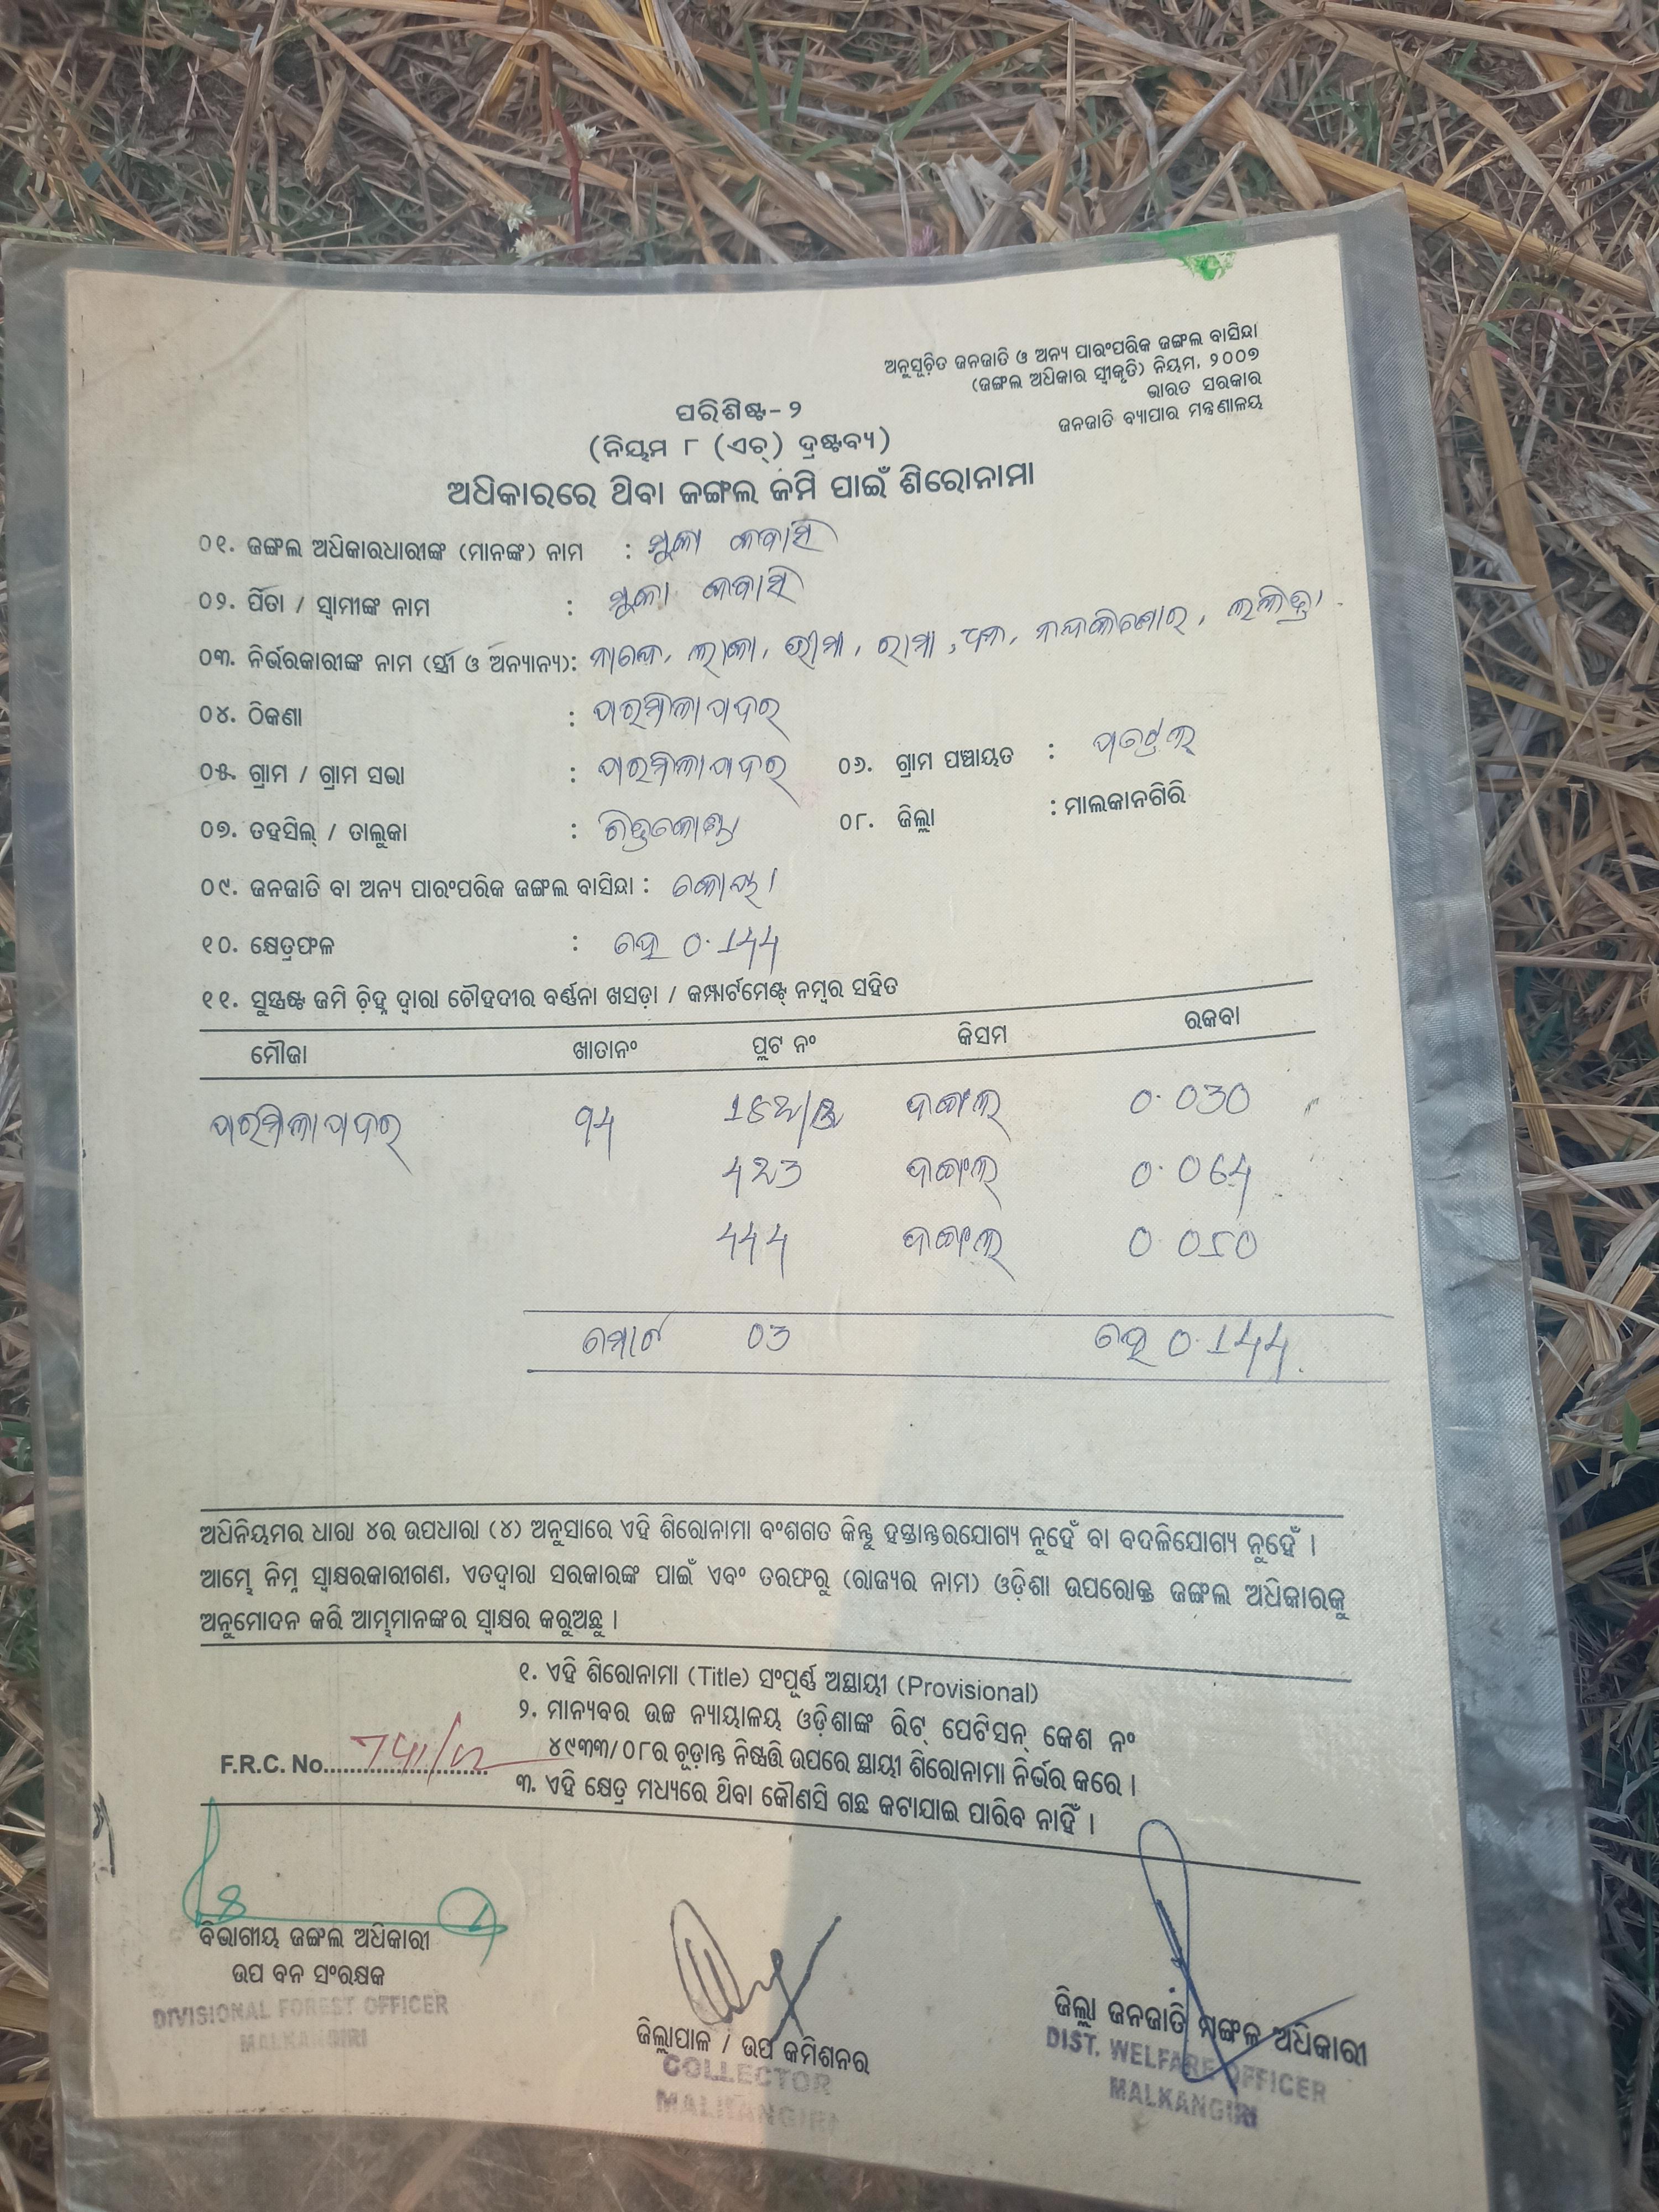 ଅନୁସୂଚିତ ଜନଜାତି ଓ ଅନ୍ୟ ପାରଂପରିକ ଜଙ୍ଗଲ ବାସିନ୍ଦା
(ଜଙ୍ଗଲ ଅଧିକାର ସ୍ୱୀକୃତି) ନିୟମ, ୨୦୦୭
ଭାରତ ସରକାର
ଜନଜାତି ବ୍ୟାପାର ମନ୍ତ୍ରଣାଳୟ
ପରିଶିଷ୍ଟ-୨
(ନିୟମ ୮ (ଏଚ୍) ଦ୍ରଷ୍ଟବ୍ୟ)
ଅଧିକାରରେ ଥିବା ଜଙ୍ଗଲ ଜମି ପାଇଁ ଶିରୋନାମା
୦୧. ଜଙ୍ଗଲ ଅଧିକାରଧାରୀଙ୍କ (ମାନଙ୍କ) ନାମ : ମୁକା କବାସି
୦୨. ପିତା / ସ୍ୱାମୀଙ୍କ ନାମ : ମୁକା କବାସି
୦୩. ନିର୍ଭରକାରୀଙ୍କ ନାମ (ସ୍ତ୍ରୀ ଓ ଅନ୍ୟାନ୍ୟ): ଲାକା, ଭୀମା, ରାମା, ନନ୍ଦକିଶୋର,
୦୪. ଠିକଣା : ପାରମିଳାପଦର
୦୫. ଗ୍ରାମ / ଗ୍ରାମ ସଭା : ପାରମିଳାପଦର ୦୬. ଗ୍ରାମ ପଞ୍ଚାୟତ :
୦୭. ତହସିଲ୍ / ତାଲୁକା : ଚିତ୍ରକୋଣ୍ଡା ୦୮. ଜିଲ୍ଲା : ମାଲକାନଗିରି
୦୯. ଜନଜାତି ବା ଅନ୍ୟ ପାରଂପରିକ ଜଙ୍ଗଲ ବାସିନ୍ଦା : କୋୟା
୧୦. କ୍ଷେତ୍ରଫଳ : ହେ 0.144
୧୧. ସୁସ୍ପଷ୍ଟ ଜମି ଚିହ୍ନ ଦ୍ୱାରା ଚୌହଦୀର ବର୍ଣ୍ଣନା ଖସଡ଼ା / କମ୍ପାର୍ଟମେଣ୍ଟ୍ ନମ୍ବର ସହିତ
ମୌଜା ଖାତାନଂ ପ୍ଲଟ ନଂ କିସମ ରକବା
ପାରମିଳାପଦର ଜଙ୍ଗଲ 0.030
ଜଙ୍ଗଲ 0.064
444 ଜଙ୍ଗଲ 0.050
ମୋଟ 03 ହେ 0.144
ଅଧିନିୟମର ଧାରା ୪ର ଉପଧାରା (୪) ଅନୁସାରେ ଏହି ଶିରୋନାମା ବଂଶଗତ କିନ୍ତୁ ହସ୍ତାନ୍ତରଯୋଗ୍ୟ ନୁହେଁ ବା ବଦଳିଯୋଗ୍ୟ ନୁହେଁ ।
ଆମ୍ଭେ ନିମ୍ନ ସ୍ୱାକ୍ଷରକାରୀଗଣ, ଏତଦ୍ୱାରା ସରକାରଙ୍କ ପାଇଁ ଏବଂ ତରଫରୁ (ରାଜ୍ୟର ନାମ) ଓଡ଼ିଶା ଉପରୋକ୍ତ ଜଙ୍ଗଲ ଅଧିକାରକୁ
ଅନୁମୋଦନ କରି ଆମ୍ଭମାନଙ୍କର ସ୍ୱାକ୍ଷର କରୁଅଛୁ ।
୧. ଏହି ଶିରୋନାମା (Title) ସଂପୂର୍ଣ୍ଣ ଅସ୍ଥାୟୀ (Provisional)
୨. ମାନ୍ୟବର ଉଚ୍ଚ ନ୍ୟାୟାଳୟ ଓଡ଼ିଶାଙ୍କ ରିଟ୍ ପେଟିସନ୍ କେଶ ନଂ
୪୯୩୩/୦୮ର ଚୂଡ଼ାନ୍ତ ନିଷ୍ପତ୍ତି ଉପରେ ସ୍ଥାୟୀ ଶିରୋନାମା ନିର୍ଭର କରେ ।
F.R.C. No.........................
୩. ଏହି କ୍ଷେତ୍ର ମଧ୍ୟରେ ଥିବା କୌଣସି ଗଛ କଟାଯାଇ ପାରିବ ନାହିଁ ।
ବିଭାଗୀୟ ଜଙ୍ଗଲ ଅଧିକାରୀ
ଉପ ବନ ସଂରକ୍ଷକ
DIVISIONAL FOREST OFFICER
MALKANGIRI
ଜିଲ୍ଲାପାଳ / ଉପ କମିଶନର
COLLECTOR
MALKANGIRI
ଜିଲ୍ଲା ଜନଜାତି ମଙ୍ଗଳ ଅଧିକାରୀ
DIST. WELFARE OFFICER
MALKANGIRI